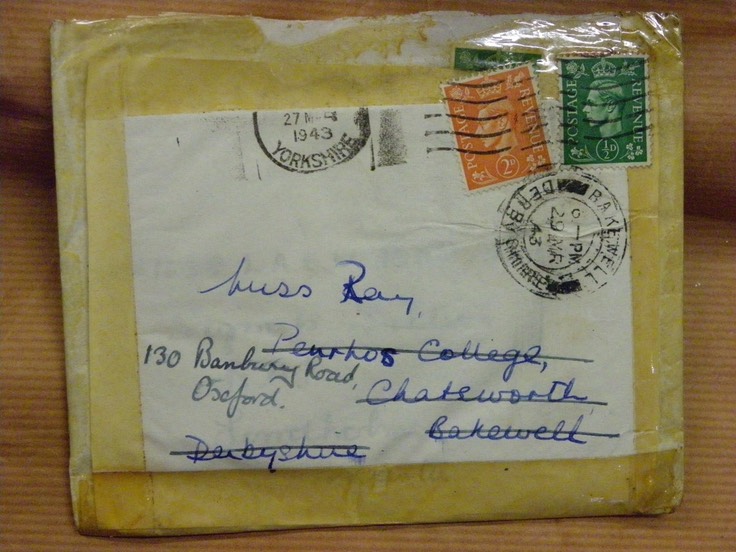 POSTAGE REVENUE
2D
POSTAGE REVENUE
½D
27 MR
1943
YORKSHIRE
BAKEWELL
6-PM
29 MR
43
DERBYSHIRE
Miss Ray,
Penrhos College,
130 Banbury Road,
Oxford.
Chatsworth,
Bakewell
Derbyshire